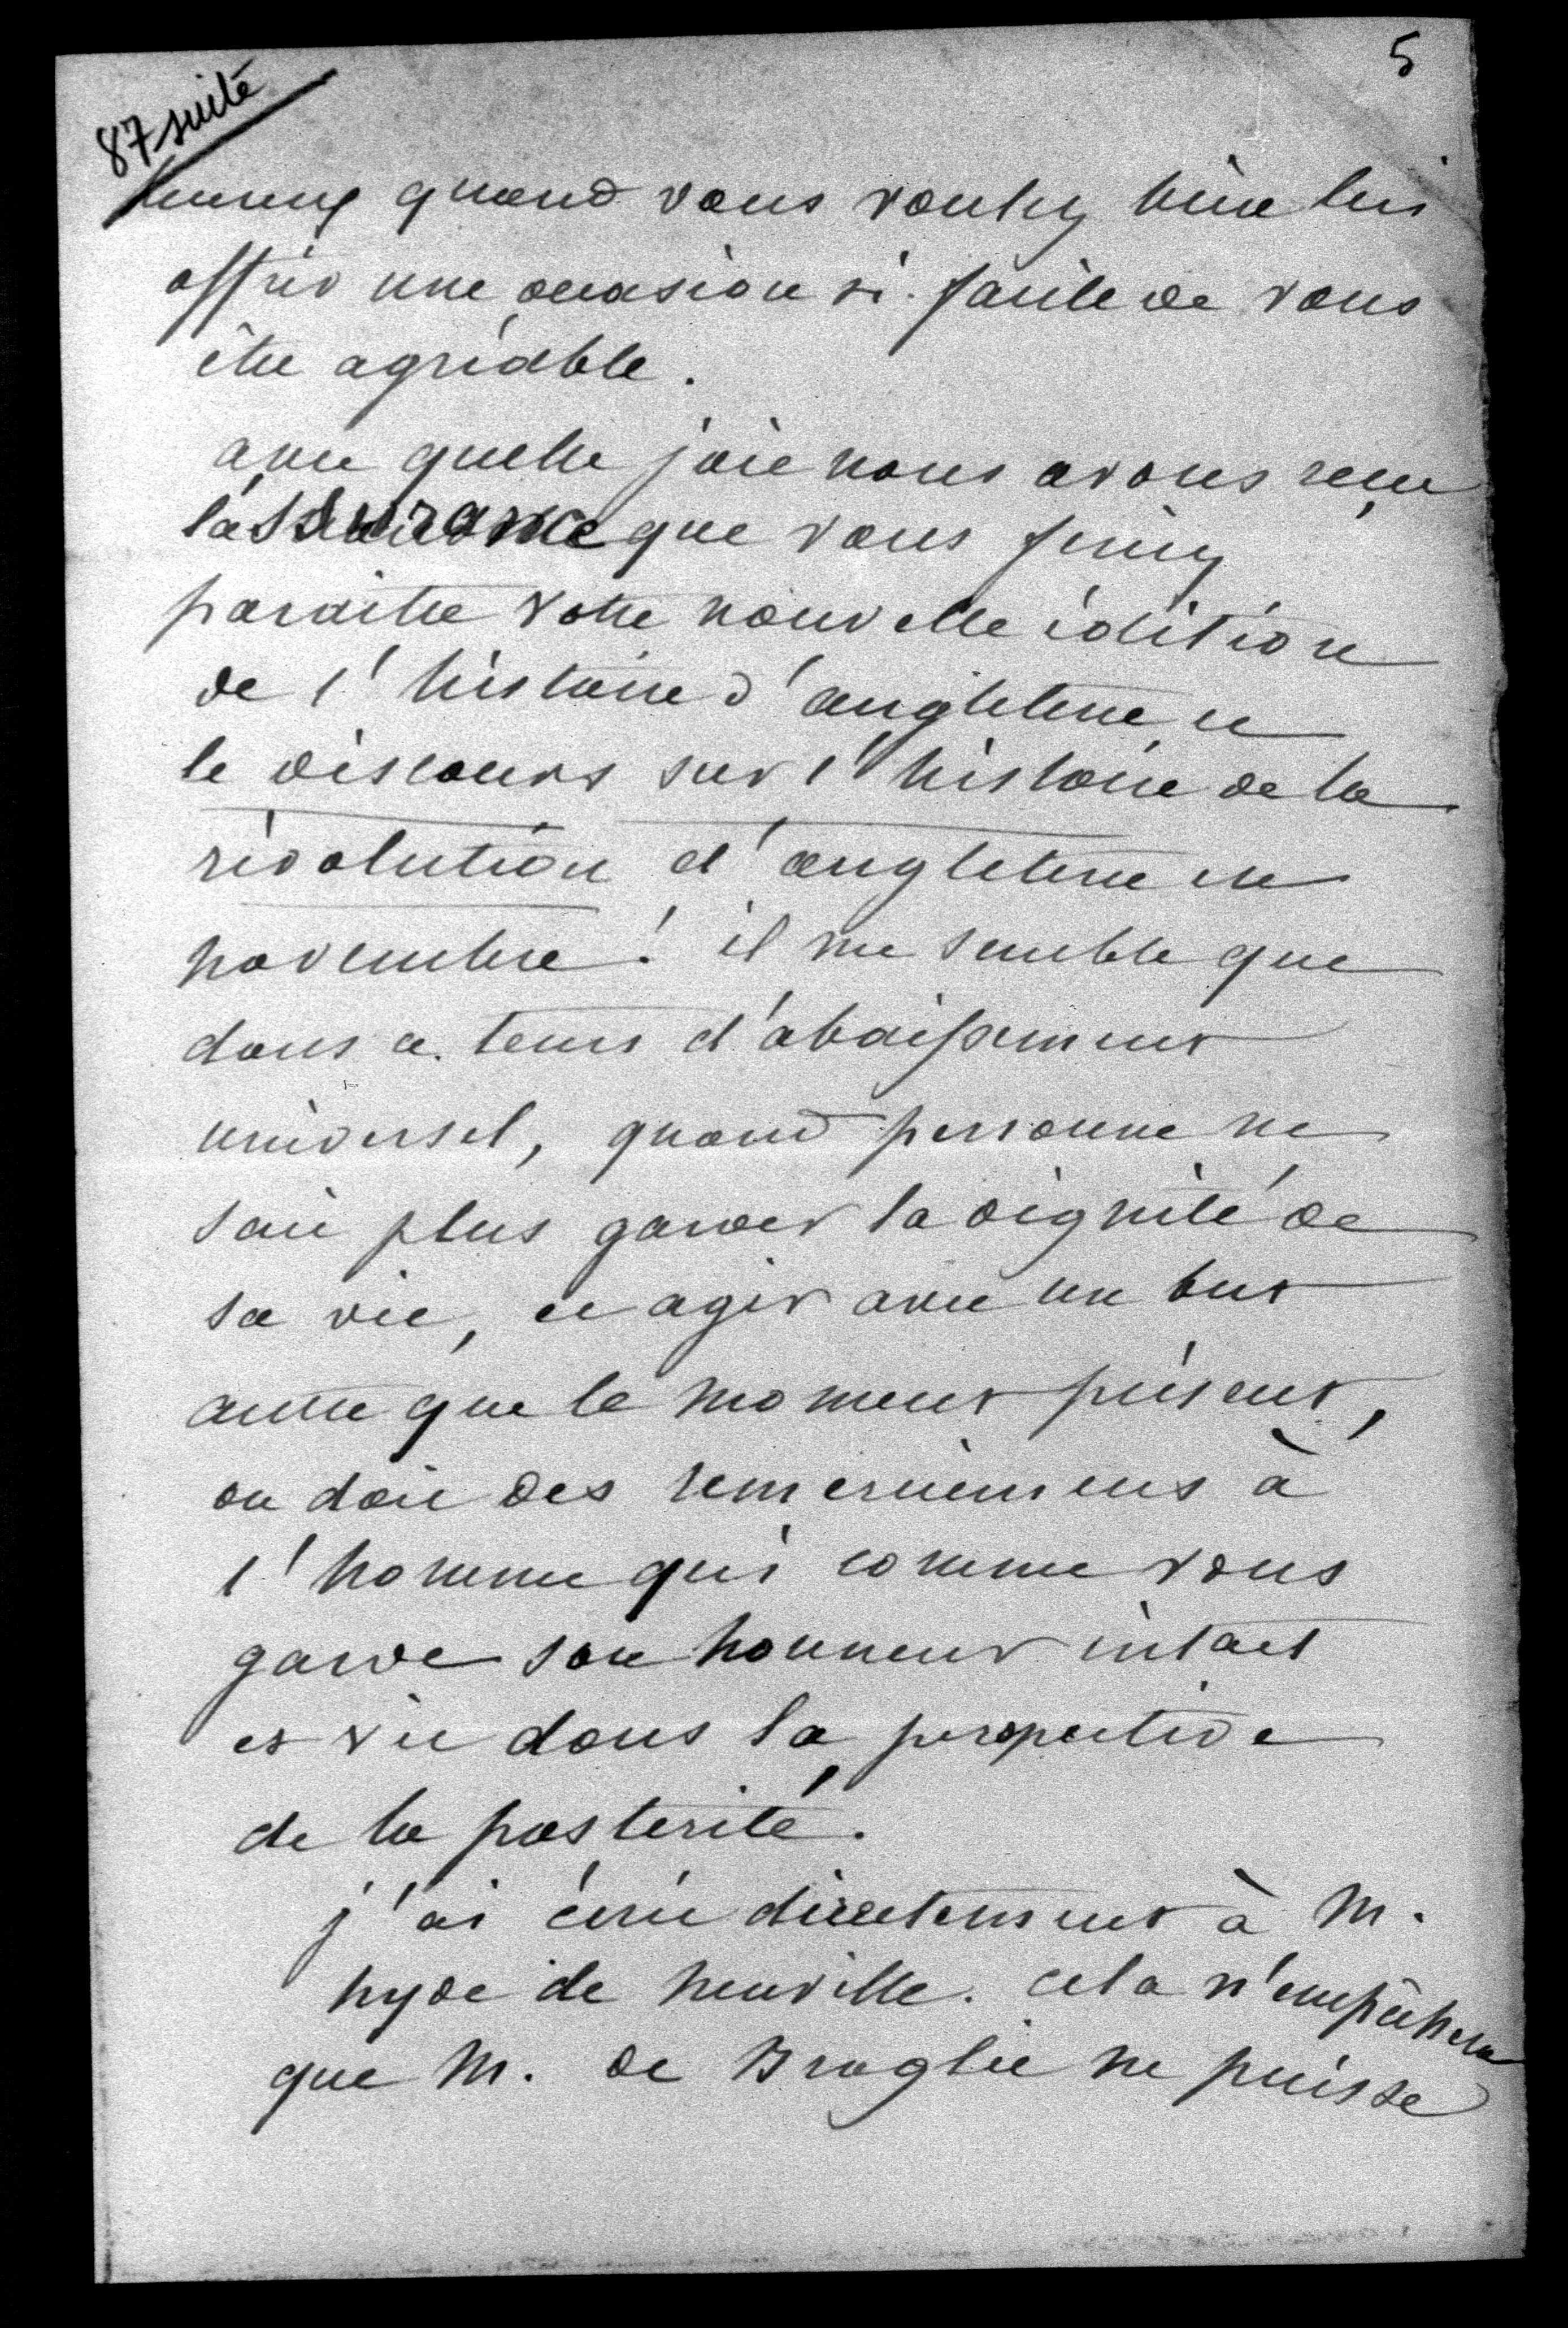 5
87 suite
heureux quand vous voulez bien lui
offrir une occasion si facile de vous
être agréable.
avec quelle joie nous avons reçu
l'assurance que vous feriez
paraitre votre nouvelle édition
de l'histoire d'angleterre et
le discours sur l'histoire de la
révolution d'angleterre en
novembre! il me semble que
dans ce tems d'abaissement
universel, quand personne ne
sait plus garder la dignité de
sa vie, et agir avec un but
autre que le moment présent,
on doit des remerciemens à
l'homme qui comme vous
garde son honneur intact
et vit dans la perspective
de la postérité.
j'ai écrit directement à M.
hyde de neuville. cela n'empêchera
que M. de Broglie ne puisse